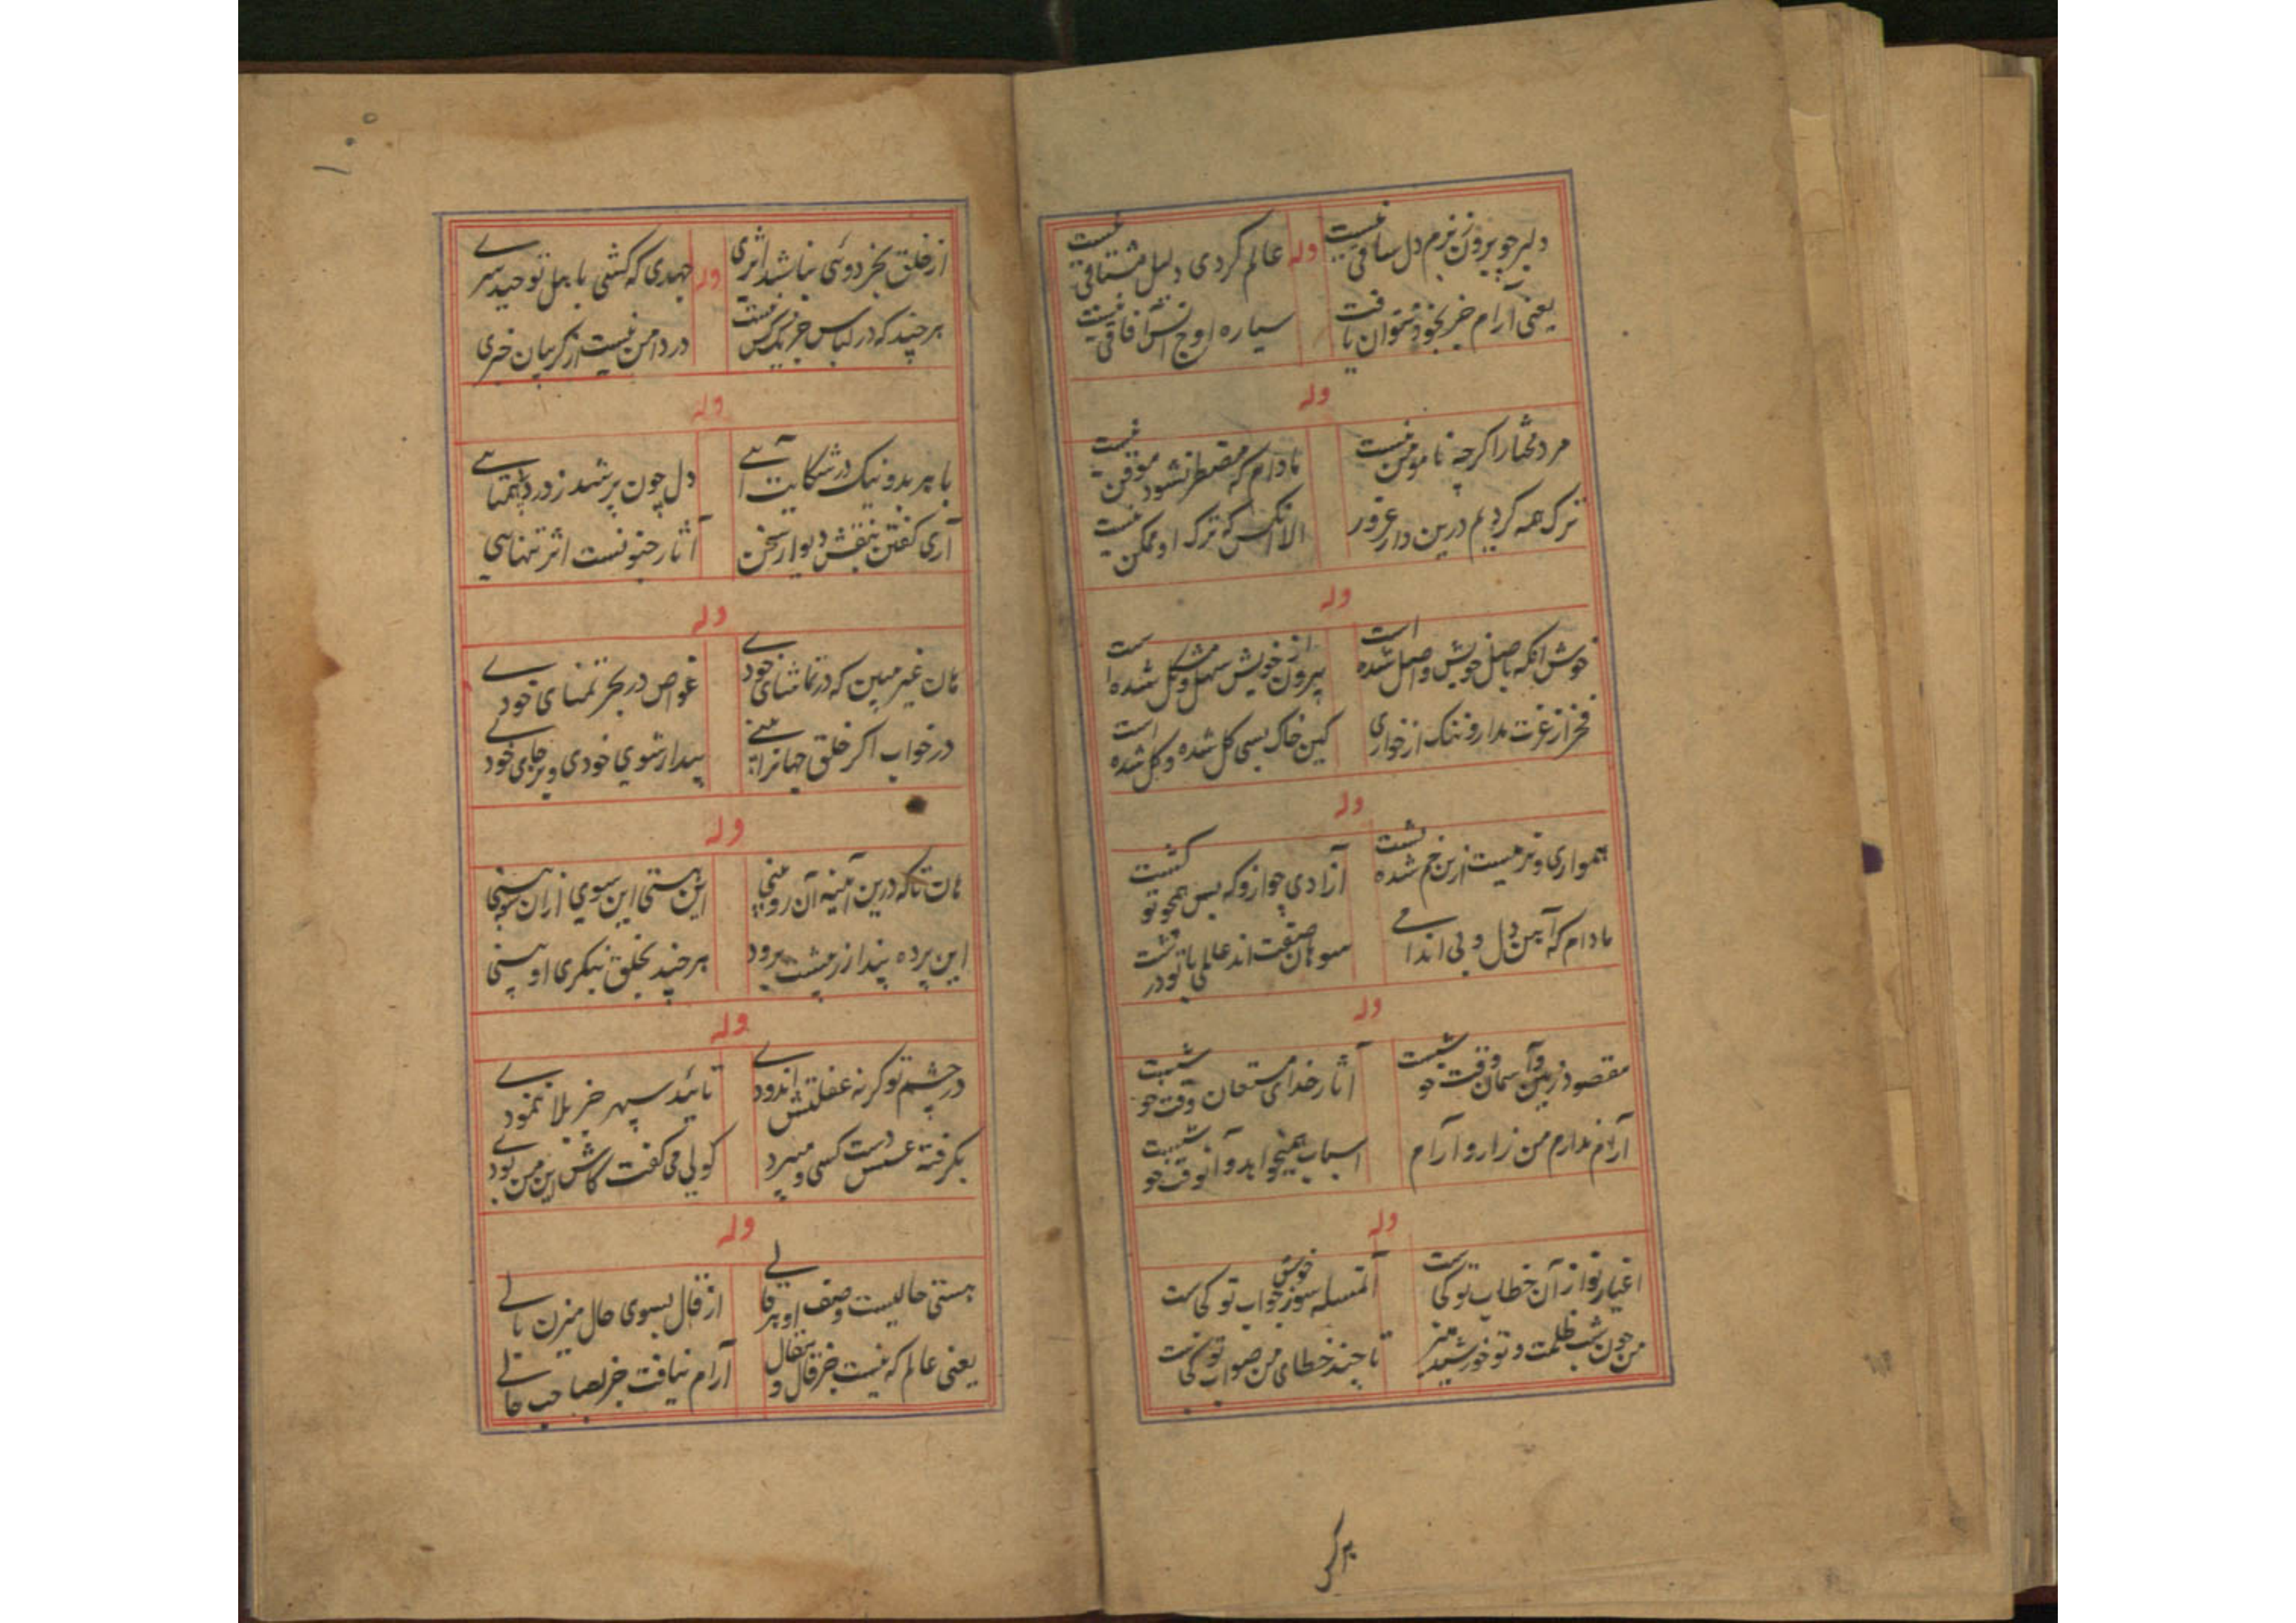 دلبر چو برون ز بزم دل ساقی نیست وله عالم کردی دلیل مشتاقی نیست
یعنی آرام جز بخود نتوان یافت سیاره اوج انفس آفاقی نیست
وله
مرد مختار اکرچه نامومن نیست تادام که مضطر نشود موقن نیست
ترک همه کردیم درین دار غرور الا انکس که ترک او ممکن نیست
وله
خوش آنکه باصل خویش واصل شده است بیرون از خویش سهل و مشکل شده است
فخر از عزت مدار و ننک از خواری کین خاک بسی کل شده و کل شده است
وله
همواری و نرمیست ازین خم شده پشت آزادی جو ازو که بس همچو تو کشت
مادام که آهن دل و بی اندامی سوهان صفت اند عالمی با تو درشت
وله
مقصود زمین و آسمان وقت خوشیست آثار خدای مستعان وقت خوشیست
آرام ندارم من زار و آرام اسباب همیخواهد و آن وقت خوشیست
وله
اغیار نواز آن خطاب تو کجاست المسله سوز خویش جواب تو کجاست
من چون شب ظلمت و تو خورشید منیر تا چند خطای من صواب تو کجاست
هرکس
۱۰۰
از خلق بجز دوئی نباشد اثری وله جهدی که کشی بابل توحید سری
هرچند که در لباس جز یک کس نیست در دامن نیست از کریبان خبری
وله
با هر بد و نیک در شکایت آئی دل چون پر شد ز درد بی همتائی
آری کفتن بنقش دیوار سخن آثار جنونست اثر تنهایی
وله
هان غیر مبین که در تماشای خودی غواص در بحر تمنای خودی
در خواب اکر خلق جهانرا بینی بیدار شوی خودی و بر جای خودی
وله
هان تاکه درین آینه آن رو بینی این هستی این سوی ازان سو بینی
این پرده پندار ز پیشت برود هرچند بخلق بنکری او بینی
وله
در چشم تو کر نه غفلتش اندودی تائید سپهر جز بلا ننمودی
بکرفته عسس دست کسی و میبرد کولی می کفت کاش این من بودی
وله
هستی حالیست وصف او پر قالی از قال بسوی حال میزن بالی
یعنی عالم که نیست جز قال و مقال آرام نیافت جز بصاحب حالی